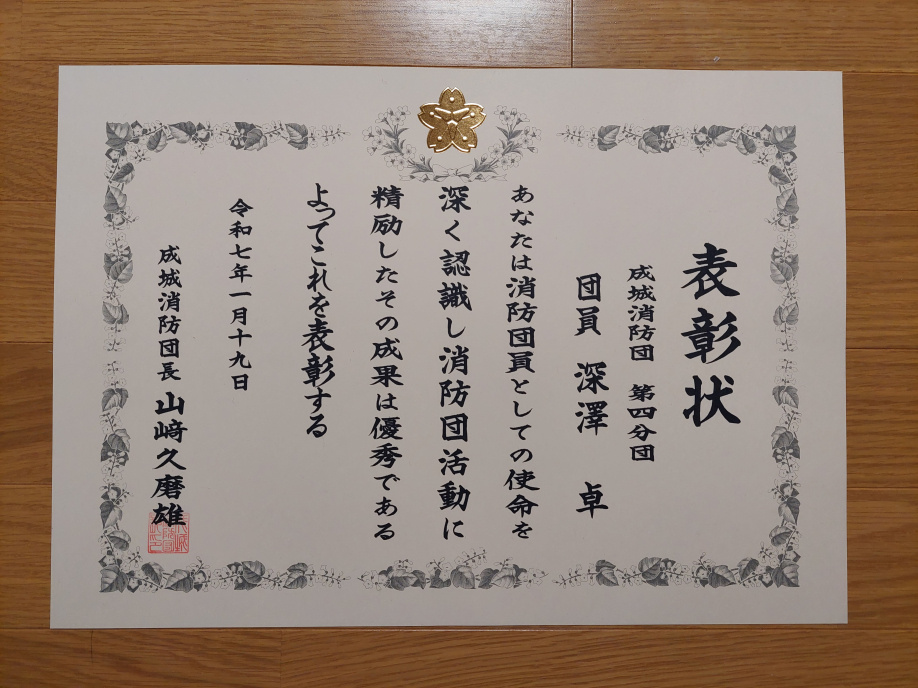 表彰状
成城消防団 第四分団
団員 深澤 卓
あなたは消防団員としての使命を
深く認識し消防団活動に
精励したその成果は優秀である
よってこれを表彰する
令和七年一月十九日
成城消防団長 山﨑久磨雄